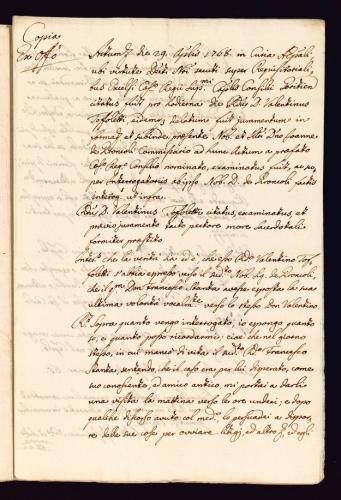 Copia
Ex Off.o
Actum die 29 Aprilis 1768 in Curia
ubi virtute super Requisitorial:
bus Excelsi Cæs. Regii Consilii
citatus fuit pro hodierna die D. Valentinus
Toffoletti, eidemq; delatum fuit juramentum in
forma, et subinde præsente Nob. et D.no Joanne
de Bronioli Commissario ad hunc actum a præfato
Cæs. Reg.o Consilio nominato, examinatus fuit, ac su:
per Interrogatoriis ab ipso Nob. D. de factis
interrog. ut infra.
D. Valentinus Toffoletti citatus, examinatus, et
prævio juramento tacto pectore more sacerdotali
formiter præstito
che la verità sia ed è, che esso Rdo Valentino Tof:
foletti s'abbia espresso verso il Nob. Sig. de
che il Don Francesco Stanta avesse esposta la sua
ultima volontà verso lo stesso Don Valentino.
R. Sopra quanto vengo interrogato, io espongo quanto
so, e quanto posso ricordarmi, cioè che nel giorno
stesso, in cui mancò di vita il Rdo Francesco
Stanta, sentendo, che il caso era per lui disperato, come
suo conoscente, ed amico antico, mi portai a darli
una visita la mattina verso le ore undeci; e dopo
qualche discorso avuto col med.o, lo persuadei a dispor:
re delle sue cose per ovviare litigj, ed altro, ed egli